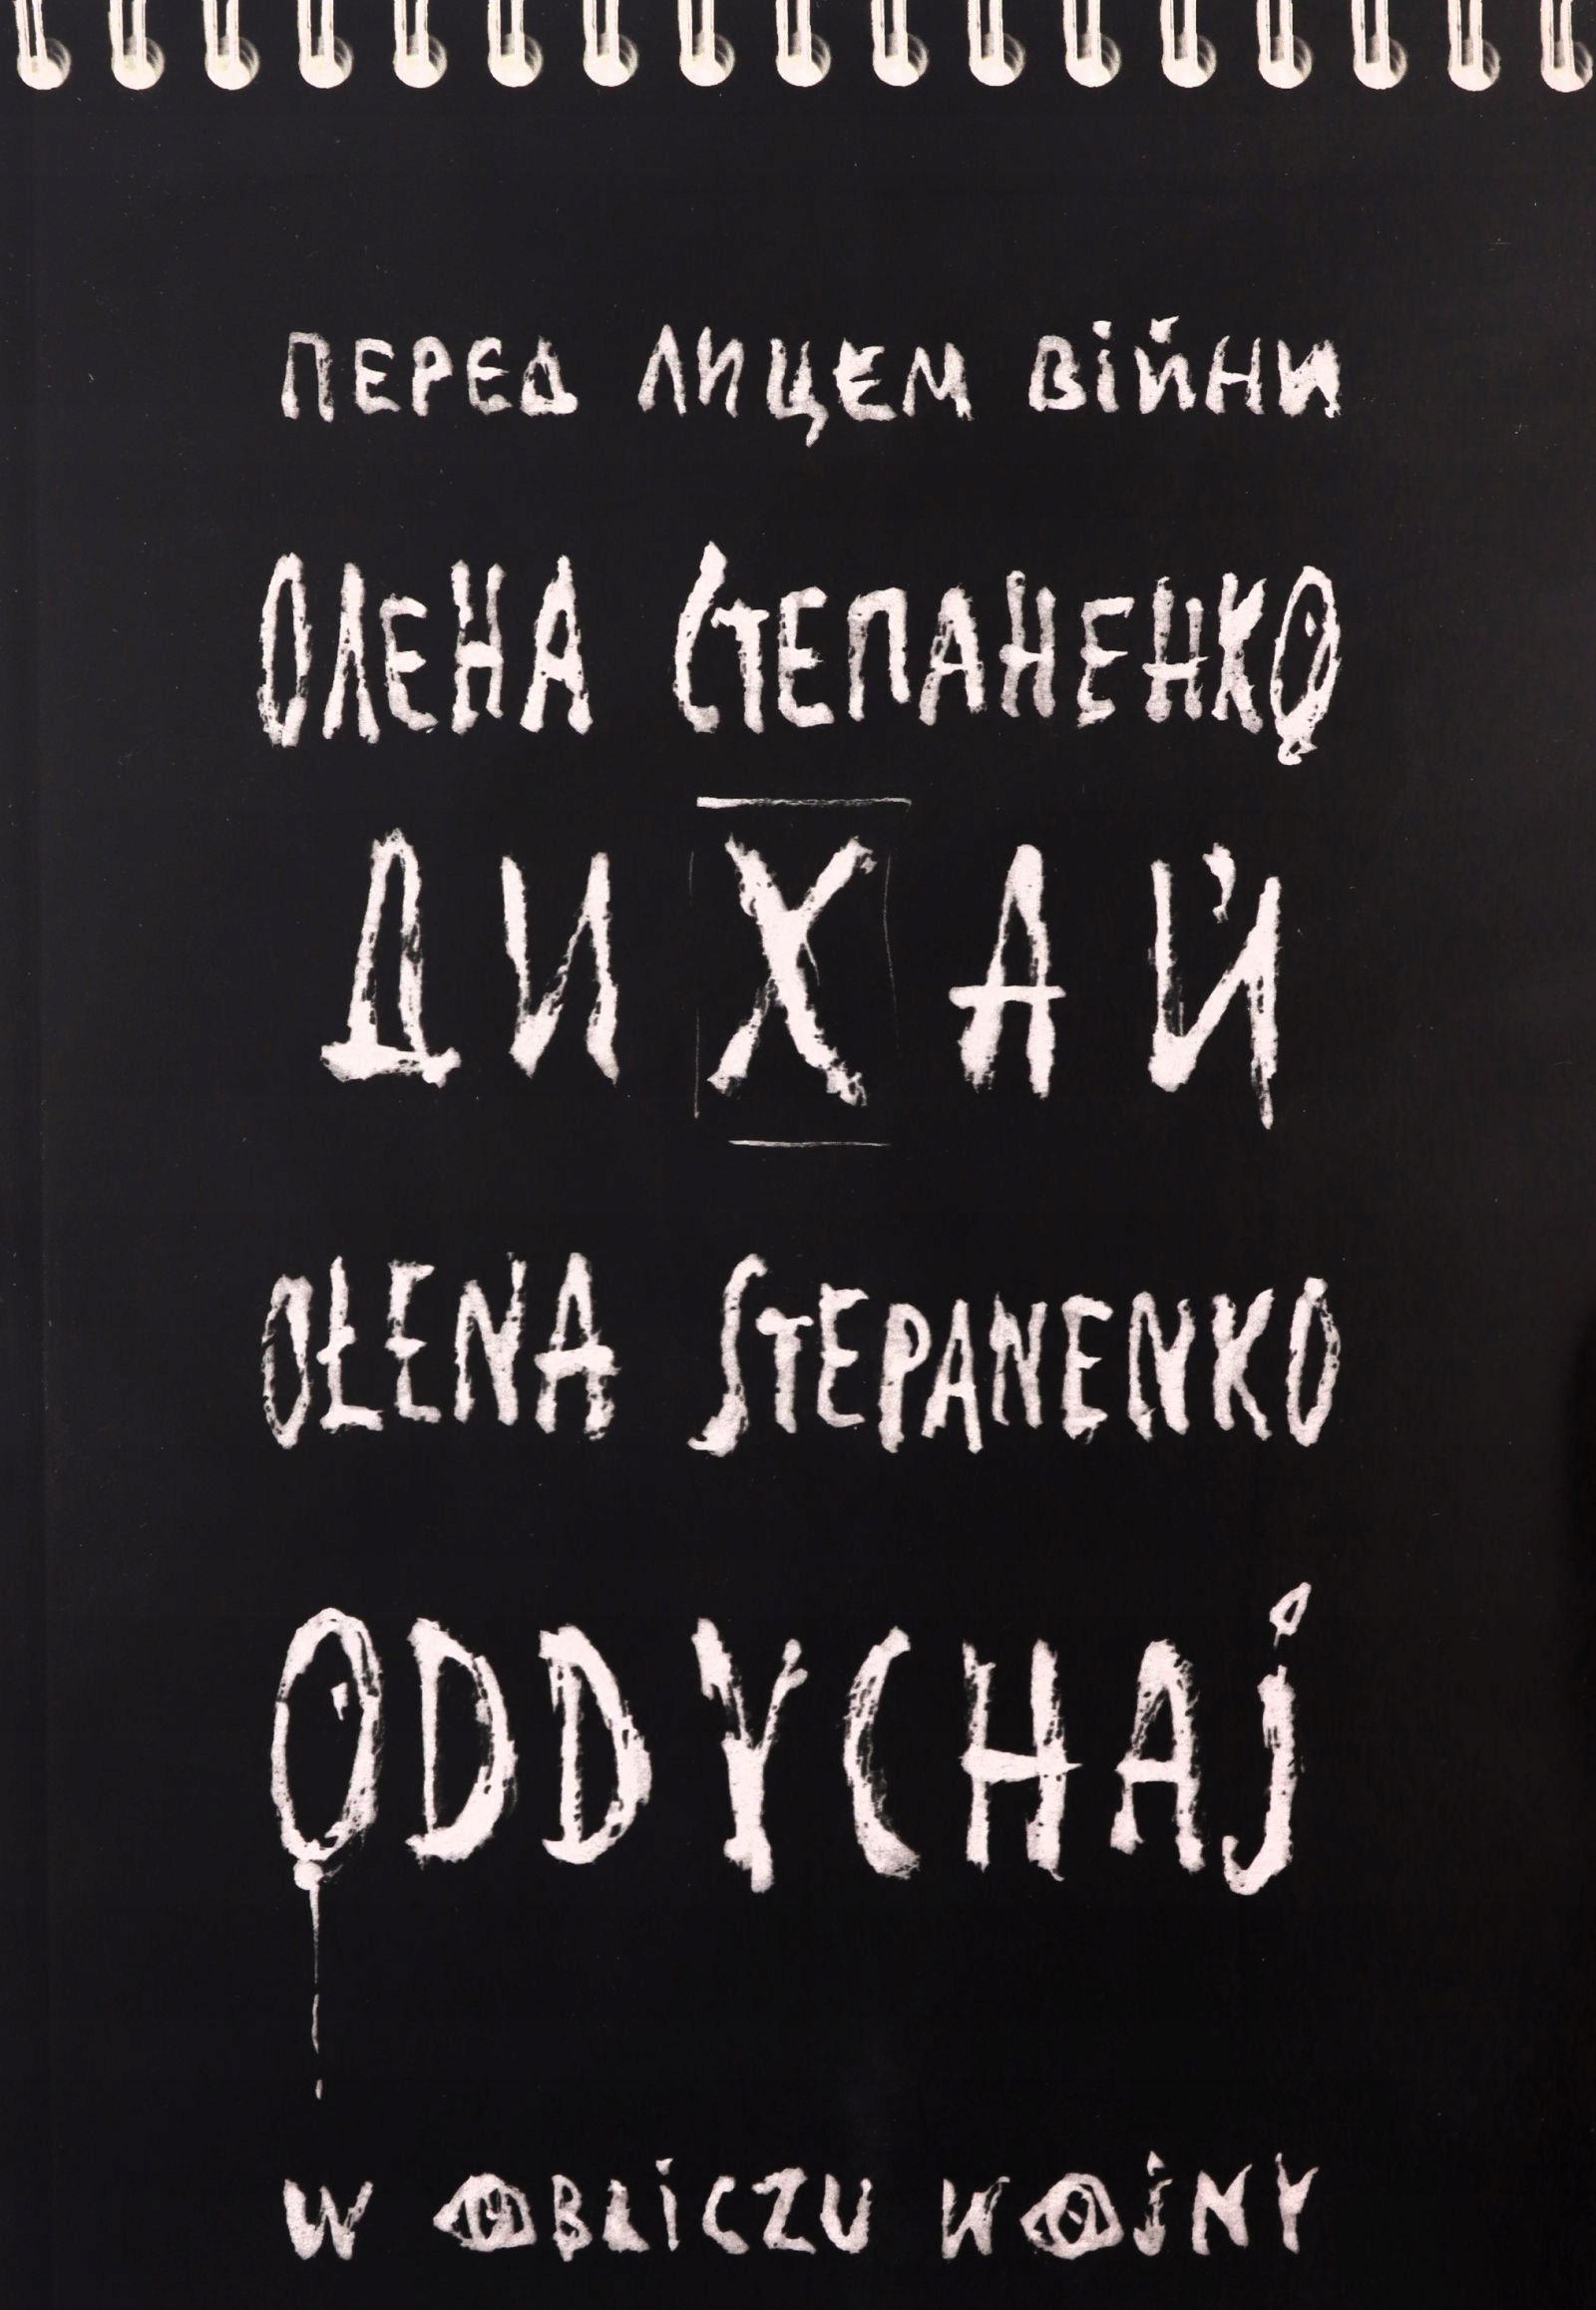 ПЕРЕД ЛИЦЕМ ВІЙНИ
ОЛЕНА СТЕПАНЕНКО
ДИХАЙ
OŁENA STEPANENKO
ODDYCHAJ
W OBLICZU WOJNY